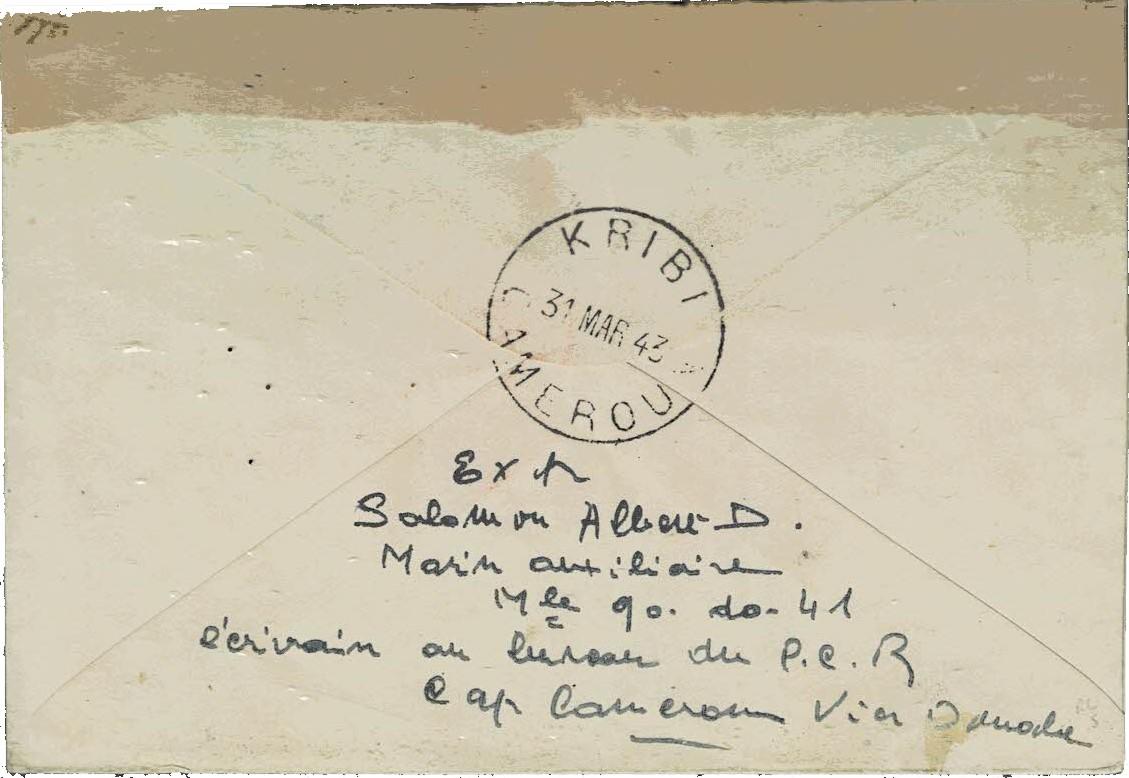 KRIBI
31 MAR 43
CAMEROU
Salomon Albert D.
Marin auxiliaire
Mle 90. do. 41
écrivain au bureau du P.C.R
Cap Cameroun Via Douala